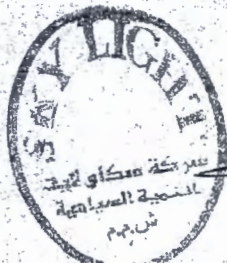 SKY LIGHT
شركة سكاي لايت
للتنمية السياحية
ش.م.م